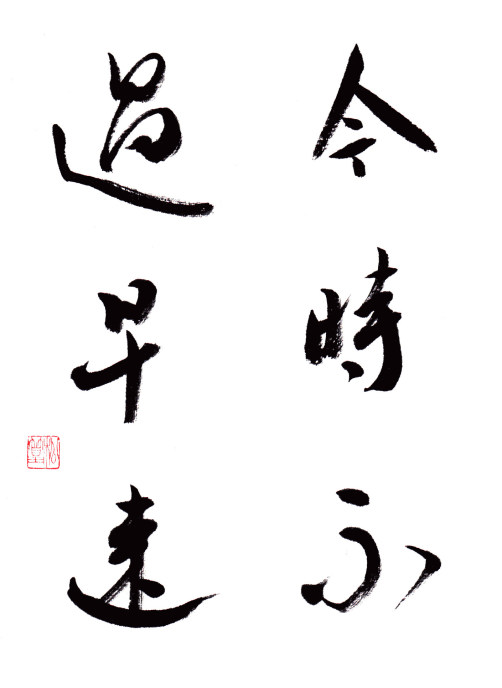 今時永
過早速